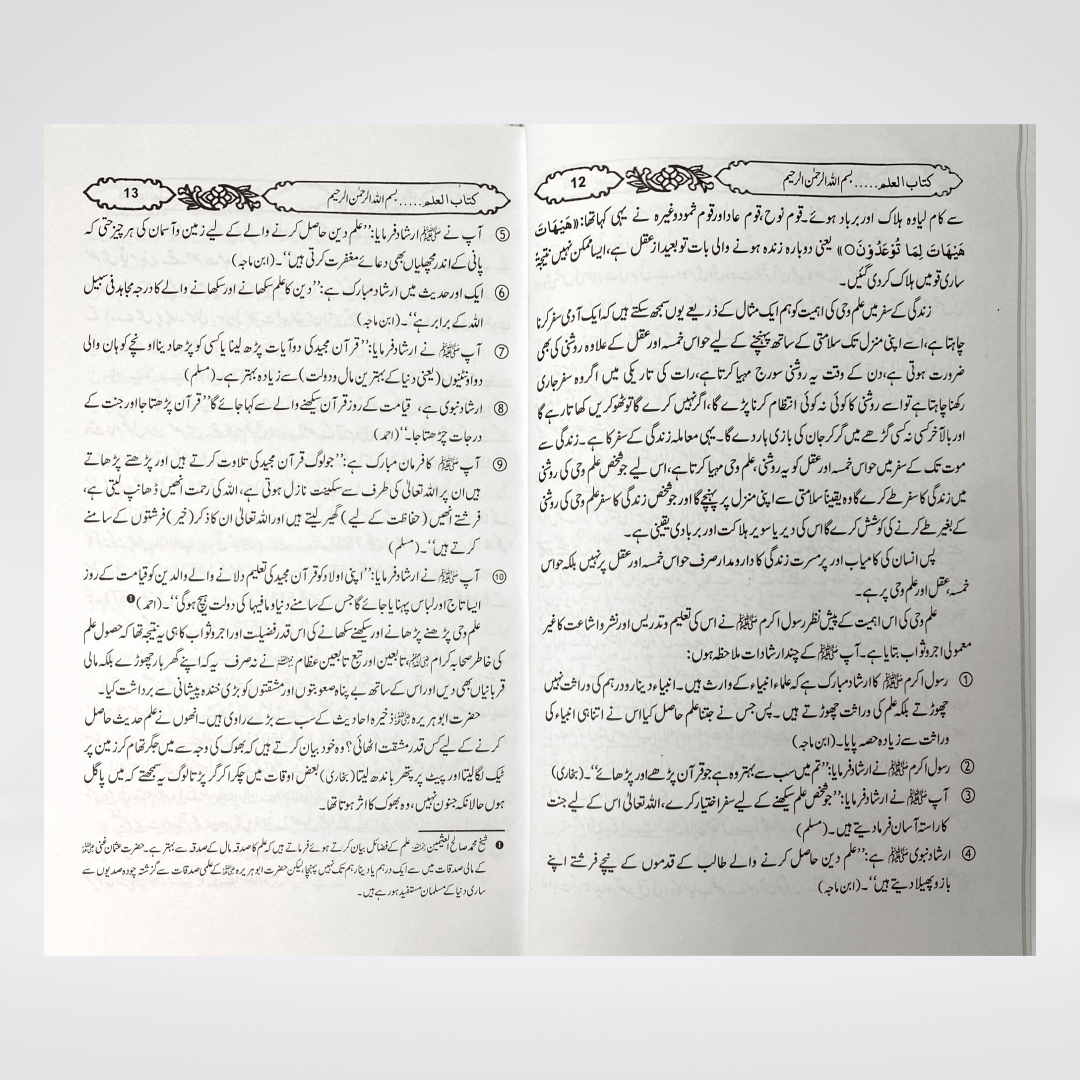 کتاب العلم..... بسم اللہ الرحمٰن الرحیم
12
سے کام لیا وہ ہلاک اور برباد ہوئے۔ قوم نوح، قوم عاد اور قوم ثمود وغیرہ نے یہی کہا تھا: «هَيْهَاتَ
هَيْهَاتَ لِمَا تُوْعَدُوْنَ○» یعنی دوبارہ زندہ ہونے والی بات تو بعید از عقل ہے، ایسا ممکن نہیں نتیجۃً
ساری قومیں ہلاک کر دی گئیں۔
زندگی کے سفر میں علم وحی کی اہمیت کو ہم ایک مثال کے ذریعے یوں سمجھ سکتے ہیں کہ ایک آدمی سفر کرنا
چاہتا ہے، اسے اپنی منزل تک سلامتی کے ساتھ پہنچنے کے لیے حواس خمسہ اور عقل کے علاوہ روشنی کی بھی
ضرورت ہوتی ہے، دن کے وقت یہ روشنی سورج مہیا کرتا ہے، رات کی تاریکی میں اگر وہ سفر جاری
رکھنا چاہتا ہے تو اسے روشنی کا کوئی نہ کوئی انتظام کرنا پڑے گا، اگر نہیں کرے گا تو ٹھوکریں کھاتا رہے گا
اور بالآخر کسی نہ کسی گڑھے میں گر کر جان کی بازی ہار دے گا۔ یہی معاملہ زندگی کے سفر کا ہے۔ زندگی سے
موت تک کے سفر میں حواس خمسہ اور عقل کو یہ روشنی، علم وحی مہیا کرتا ہے، اس لیے جو شخص علم وحی کی روشنی
میں زندگی کا سفر طے کرے گا وہ یقیناً سلامتی سے اپنی منزل پر پہنچے گا اور جو شخص زندگی کا سفر علم وحی کی روشنی
کے بغیر طے کرنے کی کوشش کرے گا اس کی دیر یا سویر ہلاکت اور بربادی یقینی ہے۔
پس انسان کی کامیاب اور پر مسرت زندگی کا دارومدار صرف حواس خمسہ اور عقل پر نہیں بلکہ حواس
خمسہ، عقل اور علم وحی پر ہے۔
علم وحی کی اس اہمیت کے پیش نظر رسول اکرم ﷺ نے اس کی تعلیم و تدریس اور نشر و اشاعت کا غیر
معمولی اجر و ثواب بتایا ہے۔ آپ ﷺ کے چند ارشادات ملاحظہ ہوں:
① رسول اکرم ﷺ کا ارشاد مبارک ہے کہ علماء انبیاء کے وارث ہیں۔ انبیاء دینار و درہم کی وراثت نہیں
چھوڑتے بلکہ علم کی وراثت چھوڑتے ہیں۔ پس جس نے جتنا علم حاصل کیا اس نے اتنا ہی انبیاء کی
وراثت سے زیادہ حصہ پایا۔ (ابن ماجہ)
② رسول اکرم ﷺ نے ارشاد فرمایا: ”تم میں سب سے بہتر وہ ہے جو قرآن پڑھے اور پڑھائے“۔ (بخاری)
③ آپ ﷺ نے ارشاد فرمایا: ”جو شخص علم سیکھنے کے لیے سفر اختیار کرے، اللہ تعالیٰ اس کے لیے جنت
کا راستہ آسان فرما دیتے ہیں۔ (مسلم)
④ ارشاد نبوی ﷺ ہے: ”علم دین حاصل کرنے والے طالب کے قدموں کے نیچے فرشتے اپنے
بازو پھیلا دیتے ہیں“۔ (ابن ماجہ)
کتاب العلم..... بسم اللہ الرحمٰن الرحیم
13
⑤ آپ نے ﷺ ارشاد فرمایا: ”علم دین حاصل کرنے والے کے لیے زمین و آسمان کی ہر چیز حتی کہ
پانی کے اندر مچھلیاں بھی دعائے مغفرت کرتی ہیں“۔ (ابن ماجہ)
⑥ ایک اور حدیث میں ارشاد مبارک ہے: ”دین کا علم سکھانے اور سکھانے والے کا درجہ مجاہد فی سبیل
اللہ کے برابر ہے“۔ (ابن ماجہ)
⑦ آپ ﷺ نے ارشاد فرمایا: ”قرآن مجید کی دو آیات پڑھ لینا یا کسی کو پڑھا دینا اونچے کوہان والی
دو اونٹنیوں (یعنی دنیا کے بہترین مال و دولت) سے زیادہ بہتر ہے۔ (مسلم)
⑧ ارشاد نبوی ہے، قیامت کے روز قرآن سیکھنے والے سے کہا جائے گا ”قرآن پڑھتا جا اور جنت کے
درجات چڑھتا جا۔“ (احمد)
⑨ آپ ﷺ کا فرمان مبارک ہے: ”جو لوگ قرآن مجید کی تلاوت کرتے ہیں اور پڑھتے پڑھاتے
ہیں ان پر اللہ تعالیٰ کی طرف سے سکینت نازل ہوتی ہے، اللہ کی رحمت انھیں ڈھانپ لیتی ہے،
فرشتے انھیں (حفاظت کے لیے) گھیر لیتے ہیں اور اللہ تعالیٰ ان کا ذکر (خیر) فرشتوں کے سامنے
کرتے ہیں“۔ (مسلم)
⑩ آپ ﷺ نے ارشاد فرمایا: ”اپنی اولاد کو قرآن مجید کی تعلیم دلانے والے والدین کو قیامت کے روز
ایسا تاج اور لباس پہنایا جائے گا جس کے سامنے دنیا و مافیہا کی دولت ہیچ ہوگی“۔ (احمد) ❶
علم وحی پڑھنے پڑھانے اور سیکھنے سکھانے کی اس قدر فضیلت اور اجر و ثواب کا ہی یہ نتیجہ تھا کہ حصول علم
کی خاطر صحابہ کرام، تابعین اور تبع تابعین عظام نے نہ صرف یہ کہ اپنے گھر بار چھوڑے بلکہ مالی
قربانیاں بھی دیں اور اس کے ساتھ بے پناہ صعوبتوں اور مشقتوں کو بڑی خندہ پیشانی سے برداشت کیا۔
حضرت ابو ہریرہ ذخیرہ احادیث کے سب سے بڑے راوی ہیں۔ انھوں نے علم حدیث حاصل
کرنے کے لیے کس قدر مشقت اٹھائی؟ وہ خود بیان کرتے ہیں کہ بھوک کی وجہ سے میں جگر تھام کر زمین پر
ٹیک لگا لیتا اور پیٹ پر پتھر باندھ لیتا (بخاری) بعض اوقات میں چکرا کر گر پڑتا لوگ یہ سمجھتے کہ میں پاگل
ہوں حالانکہ جنون نہیں، وہ بھوک کا اثر ہوتا تھا۔
❶ شیخ محمد صالح العثیمین علم کے فضائل بیان کرتے ہوئے فرماتے ہیں کہ علم کا صدقہ مال کے صدقہ سے بہتر ہے۔ حضرت عثمان غنی
کے مالی صدقات میں سے ایک درہم یا دینار ہم تک نہیں پہنچا، لیکن حضرت ابو ہریرہ کے علمی صدقات سے گزشتہ چودہ صدیوں سے
ساری دنیا کے مسلمان مستفید ہو رہے ہیں۔